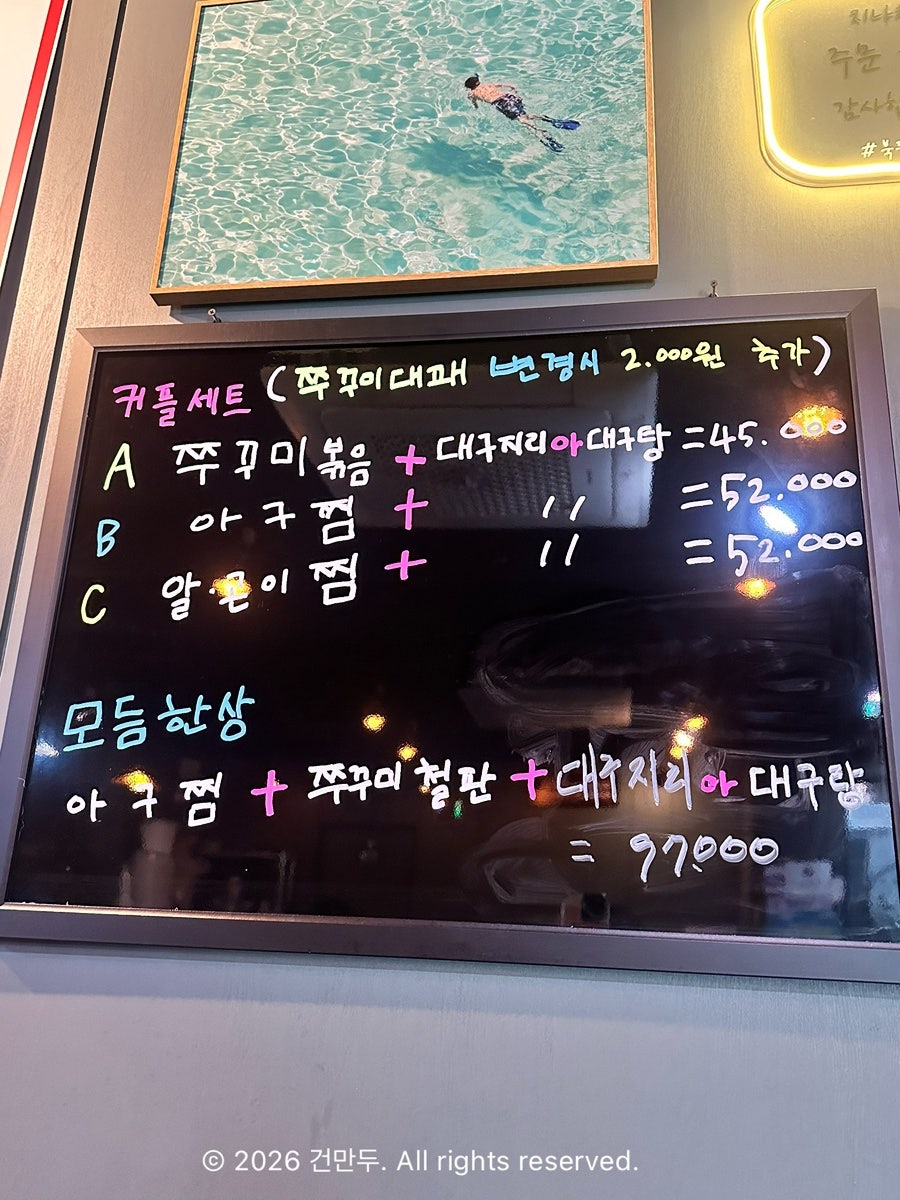 지나
주문
감사
#북
커플세트 (쭈꾸미대패 변경시 2.000원 추가)
A 쭈꾸미볶음 + 대구지리아대구탕 = 45.000
B 아구찜 + 〃 = 52.000
C 알·곤이찜 + 〃 = 52.000
모듬한상
아구찜 + 쭈꾸미철판 + 대구지리아대구탕
= 97.000
© 2026 건만두. All rights reserved.